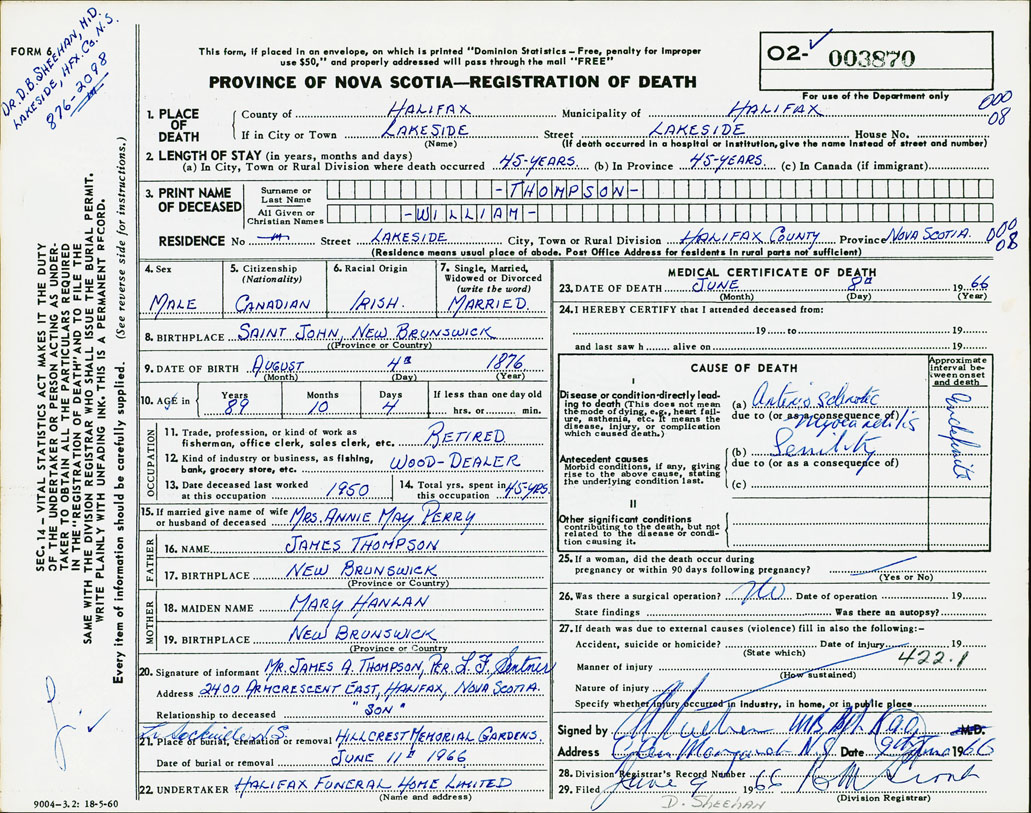 DR. D.B. SHEEHAN, M.D.
LAKESIDE, HFX. CO. N.S.
876-2098
FORM 6
This form, if placed in an envelope, on which is printed "Dominion Statistics – Free, penalty for improper
use $50," and properly addressed will pass through the mail "FREE"
PROVINCE OF NOVA SCOTIA—REGISTRATION OF DEATH
02- 003870
For use of the Department only
000
08
SEC. 14 – VITAL STATISTICS ACT MAKES IT THE DUTY
OF THE UNDERTAKER OR PERSON ACTING AS UNDER-
TAKER TO OBTAIN ALL THE PARTICULARS REQUIRED
IN THE "REGISTRATION OF DEATH" AND TO FILE THE
SAME WITH THE DIVISION REGISTRAR WHO SHALL ISSUE THE BURIAL PERMIT.
WRITE PLAINLY WITH UNFADING INK. THIS IS A PERMANENT RECORD.
Every item of information should be carefully supplied. (See reverse side for instructions.)
1. PLACE OF DEATH
County of HALIFAX Municipality of HALIFAX
If in City or Town LAKESIDE Street LAKESIDE House No.
(Name) (If death occurred in a hospital or institution, give the name instead of street and number)
2. LENGTH OF STAY (in years, months and days)
(a) In City, Town or Rural Division where death occurred 45-YEARS. (b) In Province 45-YEARS. (c) In Canada (if immigrant)
3. PRINT NAME OF DECEASED
Surname or Last Name -THOMPSON-
All Given or Christian Names -WILLIAM-
RESIDENCE No Street LAKESIDE City, Town or Rural Division HALIFAX COUNTY Province NOVA SCOTIA. 000
08
(Residence means usual place of abode. Post Office Address for residents in rural parts not sufficient)
4. Sex
MALE
5. Citizenship
(Nationality)
CANADIAN
6. Racial Origin
IRISH.
7. Single, Married,
Widowed or Divorced
(write the word)
MARRIED.
8. BIRTHPLACE SAINT JOHN, NEW BRUNSWICK
((Province or Country)
9. DATE OF BIRTH AUGUST 4th 1876
(Month) (Day) (Year)
10. AGE in Years 89 Months 10 Days 4 If less than one day old
hrs. or min.
OCCUPATION
11. Trade, profession, or kind of work as
fisherman, office clerk, sales clerk, etc. RETIRED
12. Kind of industry or business, as fishing,
bank, grocery store, etc. WOOD-DEALER
13. Date deceased last worked
at this occupation 1950
14. Total yrs. spent in
this occupation 45-YRS.
15. If married give name of wife
or husband of deceased MRS. ANNIE MAY PERRY
FATHER
16. NAME JAMES THOMPSON
17. BIRTHPLACE NEW BRUNSWICK
(Province or Country)
MOTHER
18. MAIDEN NAME MARY HANLAN
19. BIRTHPLACE NEW BRUNSWICK
(Province or Country
20. Signature of informant MR. JAMES A. THOMPSON, PER. L. F.
Address 2400 ARMCRESCENT EAST, HALIFAX, NOVA SCOTIA.
Relationship to deceased "SON"
Sackville N.S.
21. Place of burial, cremation or removal HILLCREST MEMORIAL GARDENS.
Date of burial or removal JUNE 11th 1966
22. UNDERTAKER HALIFAX FUNERAL HOME LIMITED
(Name and address)
9004-3.2: 18-5-60
MEDICAL CERTIFICATE OF DEATH
23. DATE OF DEATH JUNE 8th 1966
(Month) (Day) (Year)
24. I HEREBY CERTIFY that I attended deceased from:
19 to 19
and last saw h alive on 19
CAUSE OF DEATH
Approximate
interval be-
tween onset
and death
I
Disease or condition directly lead-
ing to death (This does not mean
the mode of dying, e.g., heart fail-
ure, asthenia, etc. It means the
disease, injury, or complication
which caused death.)
(a) Arterio Sclerotic
due to (or as a consequence of)
myocarditis
Indefinite
Antecedent causes
Morbid conditions, if any, giving
rise to the above cause, stating
the underlying condition last.
(b) Senility
due to (or as a consequence of)
(c)
II
Other significant conditions
contributing to the death, but not
related to the disease or condi-
tion causing it.
25. If a woman, did the death occur during
pregnancy or within 90 days following pregnancy?
(Yes or No)
26. Was there a surgical operation? No Date of operation 19
State findings Was there an autopsy?
27. If death was due to external causes (violence) fill in also the following:-
Accident, suicide or homicide? Date of injury 19
(State which)
422.1
Manner of injury
(How sustained)
Nature of injury
Specify whether injury occurred in industry, in home, or in public place
Signed by M.D.
Address N.S. Date 9th June 1966
28. Division Registrar's Record Number
29. Filed June 9 1966
(Division Registrar)
D. SHEEHAN